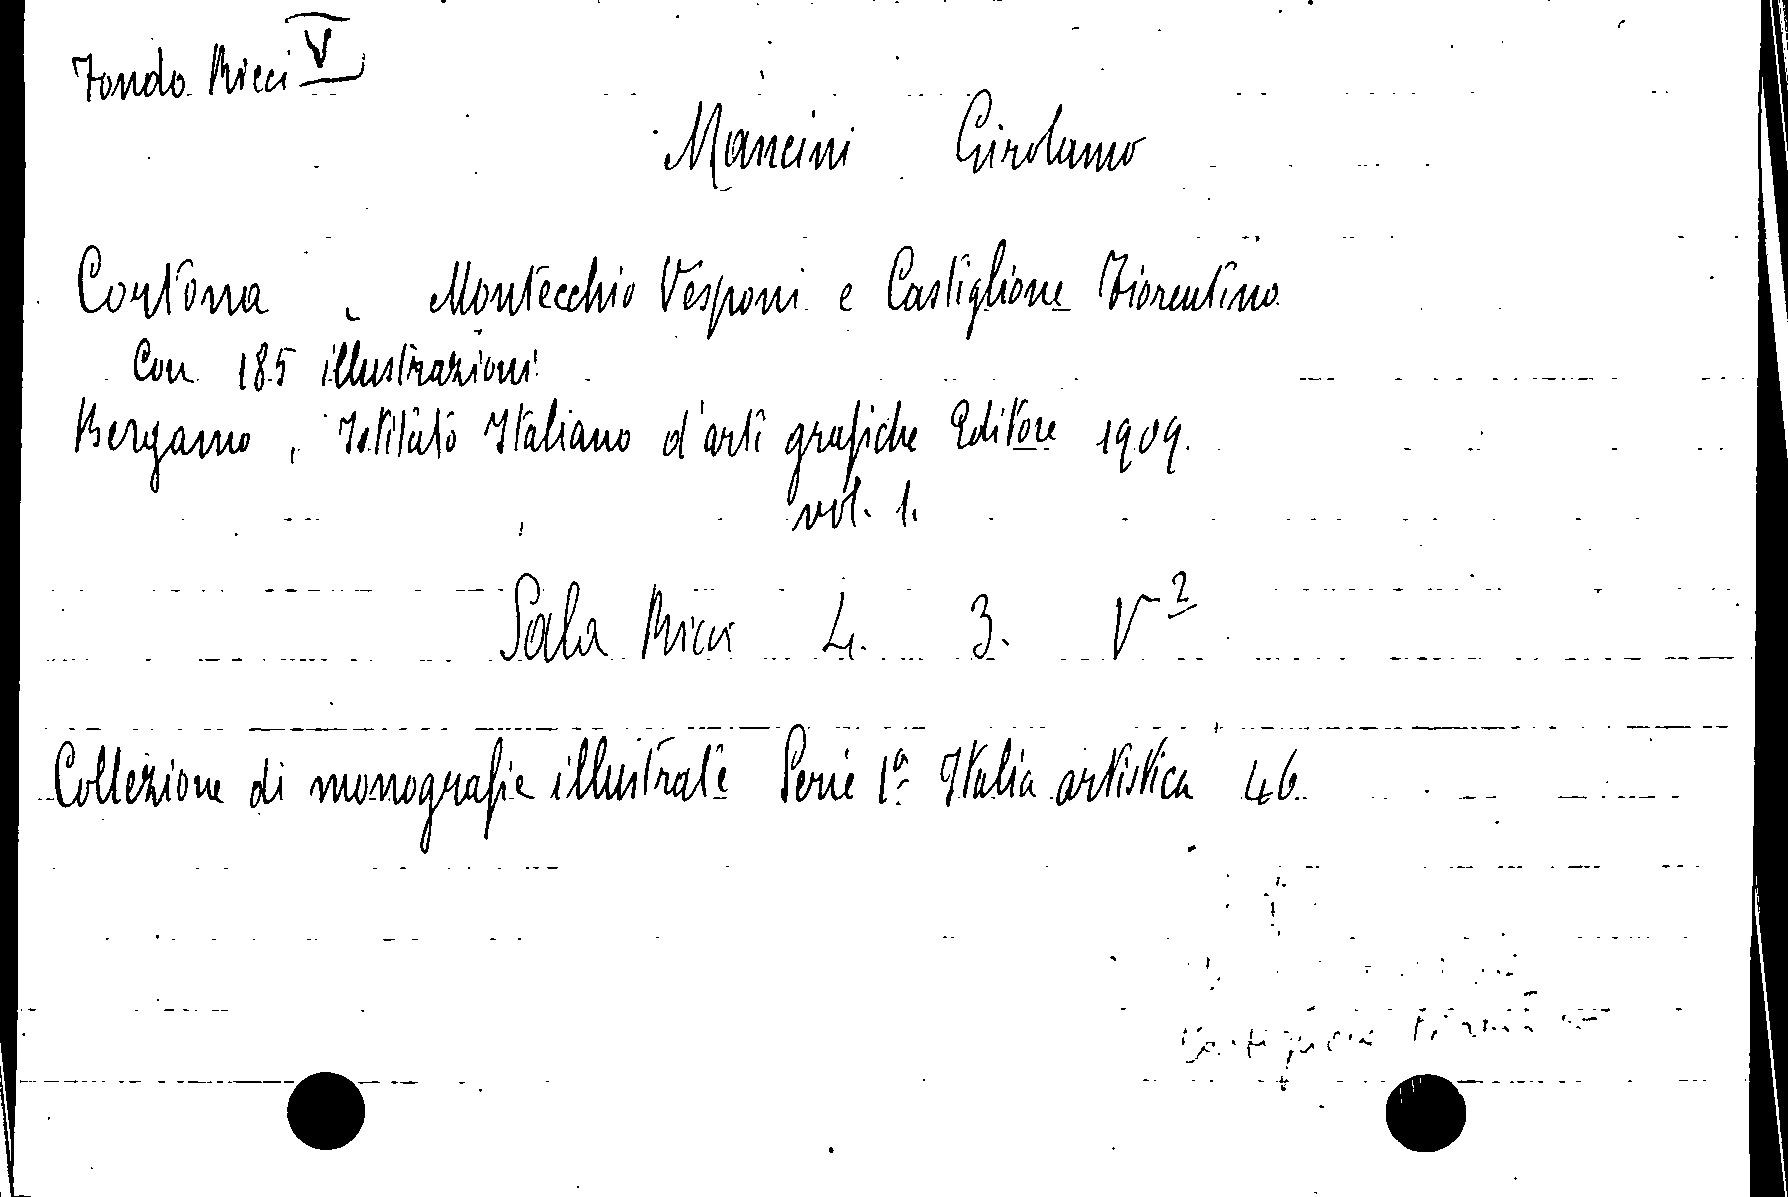 Fondo Ricci V
Mancini Girolamo
Cortona, Montecchio Vesponi e Castiglione Fiorentino
Con 185 illustrazioni
Bergamo, Istituto Italiano d'arti grafiche Editore 1909.
vol. 1.
Sala Ricci 4. 3. V²
Collezione di monografie illustrate Serie 1ª Italia artistica 46